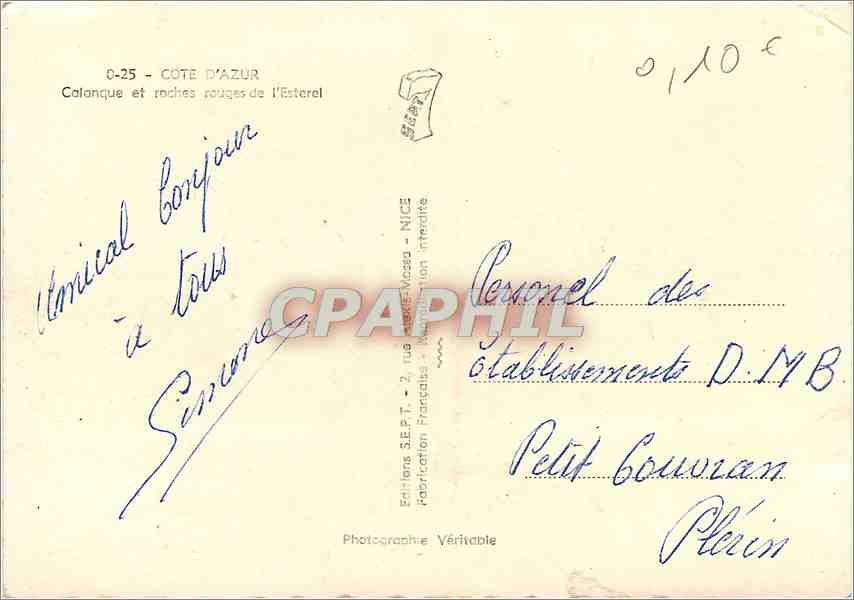 0-25 - COTE D'AZUR
Calanque et roches rouges de l'Esterel
0,10 €
SEPT
Amical bonjour
à tous
Simone
Editions S.E.P.T. - 2, rue Alexis-Mossa - NICE
Fabrication Française - Reproduction interdite
CPAPHIL
Personel des
établissements D.M.B.
Petit Couvran
Plérin
Photographie Véritable